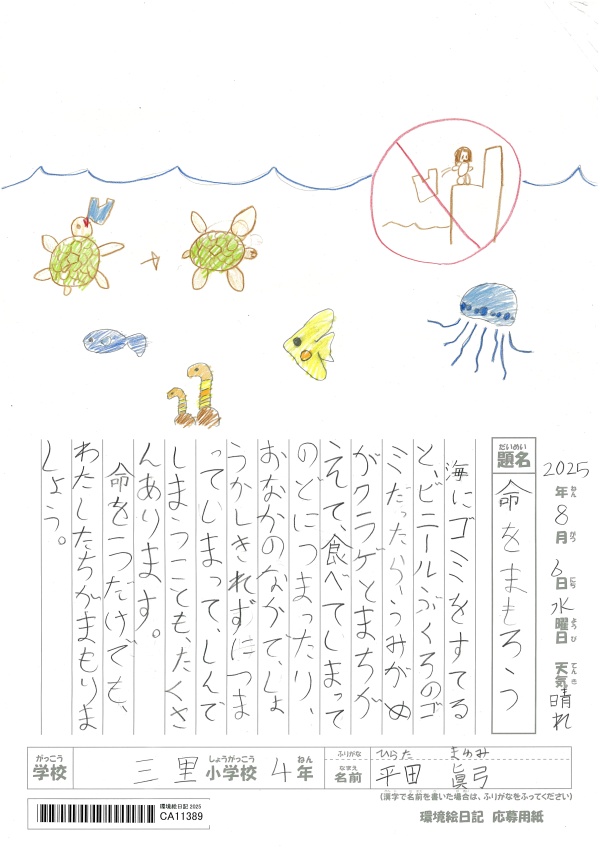 2025年8月6日水曜日 天気晴れ
ねん がつ にち ようび てんき
だいめい
題名 命をまもろう
海にゴミをすてる
と、ビニールぶくろのゴ
ミだったら、うみがめ
がクラゲとまちが
えて、食べてしまって
のどにつまったり、
おなかのなかで、しょ
うかしきれずにつま
ってしまって、しんで
しまうことも、たくさ
んあります。
命を一つだけでも、
わたしたちがまもりま
しょう。
がっこう しょうがっこう ねん
学校 三里小学校 4年
ふりがな ひらた まゆみ
なまえ
名前 平田 眞弓
(漢字で名前を書いた場合は、ふりがなをふってください)
環境絵日記 2025
CA11389
環境絵日記 応募用紙